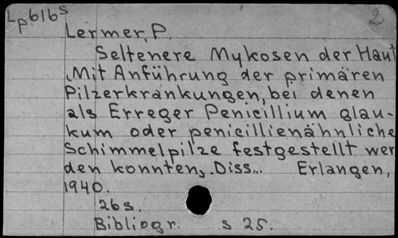 Lp616s
2
Lermer, P.
Seltenere Mykosen der Haut
Mit Anführung der primären
Pilzerkrankungen, bei denen
als Erreger Penicillium glau-
kum oder penicillienähnliche
Schimmelpilze festgestellt wer
den konnten, Diss... Erlangen,
1940.
26s.
Bibliogr. s 25.